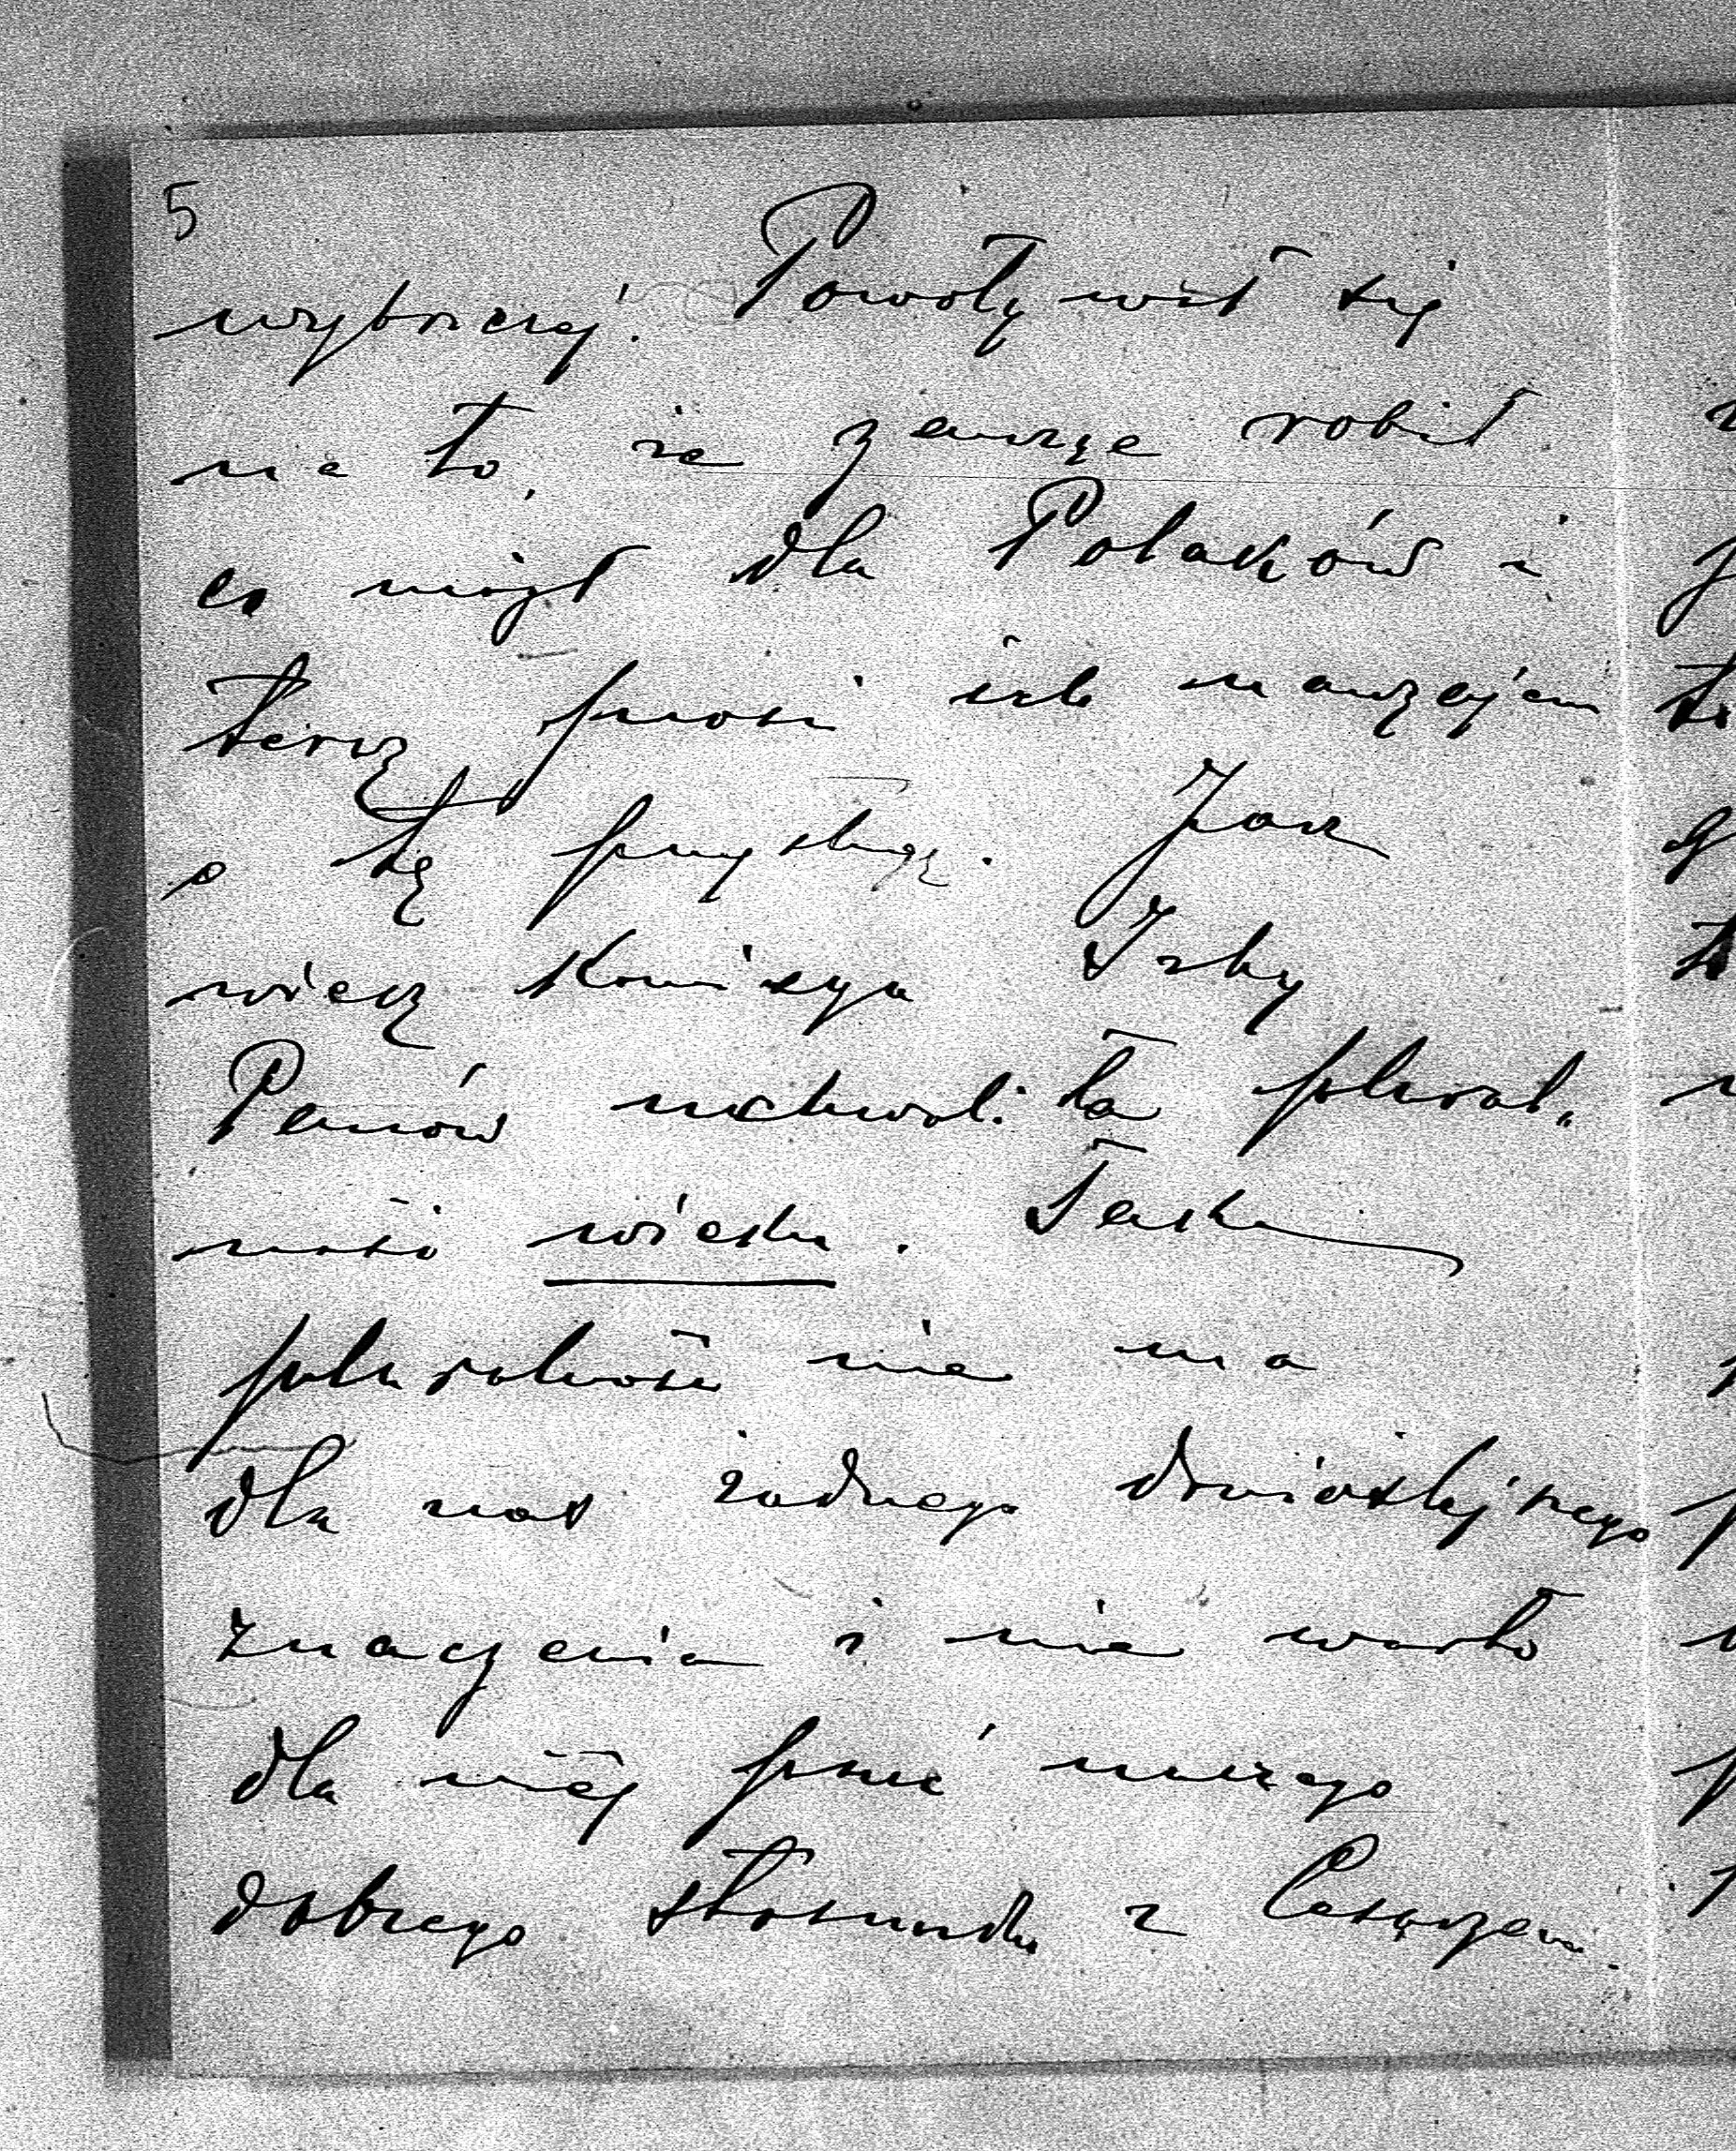 5
wyborczej. Powoływał się
na to, że zawsze robił
co mógł dla Polaków i
teraz prosi ich nawzajem
o tę przysługę. Jak
wiesz komisya Izby
Panów uchwaliła plural-
ność wieku. Taka
pluralność nie ma
dla nas żadnego donioślejszego
znaczenia i nie warto
dla niej psuć naszego
dobrego stosunku z Cesarzem.